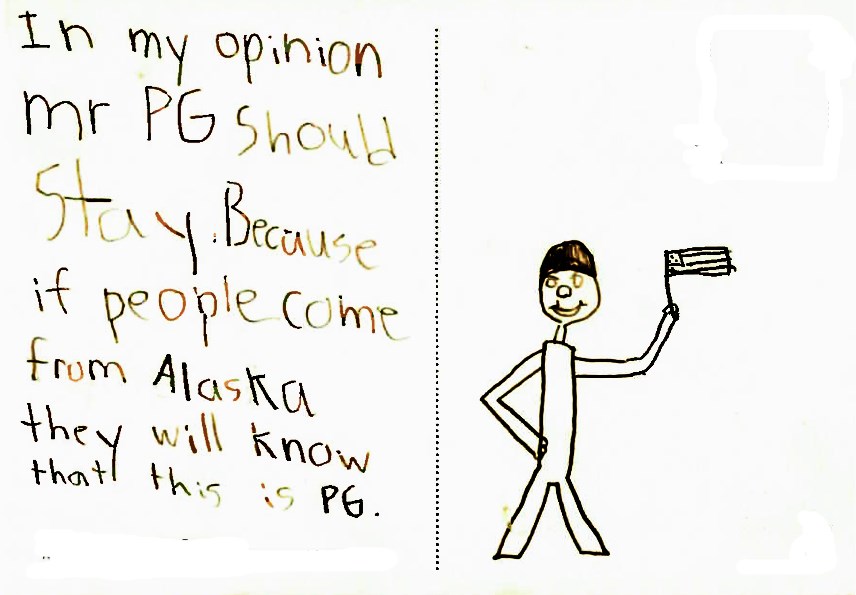 In my opinion
mr PG Should
Stay. Because
if people come
from Alaska
they will know
that this is PG.